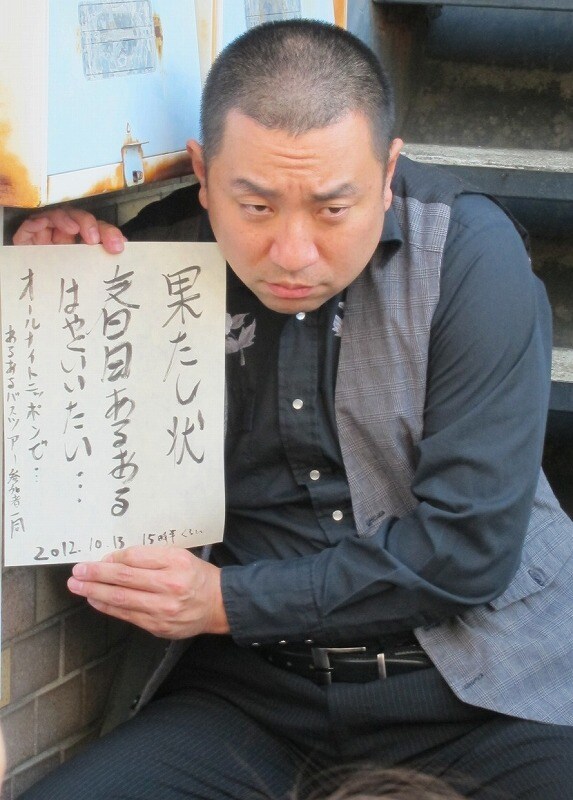 果たし状
春日あるある
はやくいいたい…
オールナイトニッポンで…
あるあるバスツアー参加者一同
2012.10.13 15時半ぐらい…